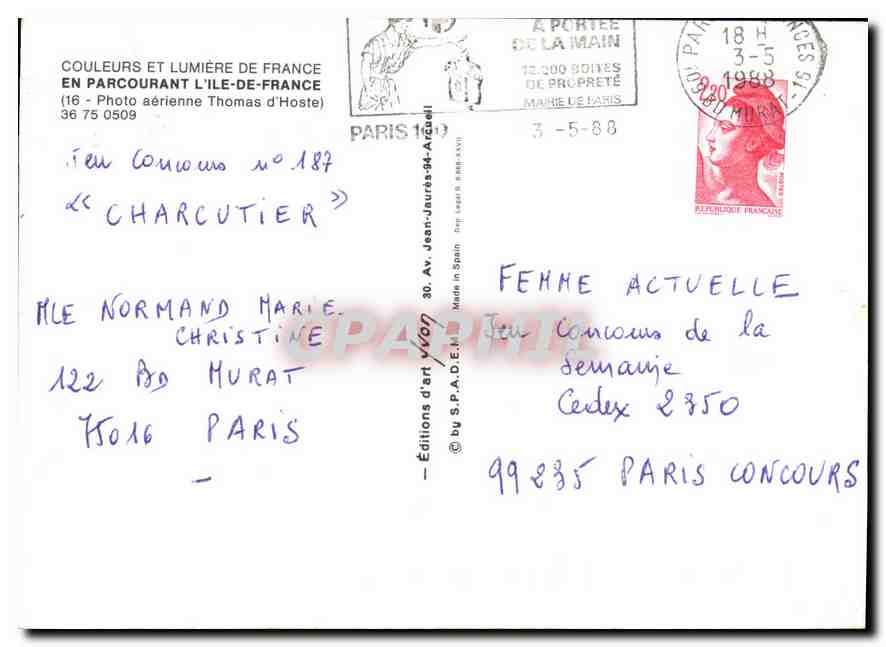 COULEURS ET LUMIÈRE DE FRANCE
EN PARCOURANT L'ILE-DE-FRANCE
(16 - Photo aérienne Thomas d'Hoste)
36 75 0509
Jeu Concours nº 187
« CHARCUTIER »
MLE NORMAND MARIE-
CHRISTINE
122 BD MURAT
75016 PARIS
A PORTEE
DE LA MAIN
12.200 BOITES
DE PROPRETÉ
MAIRIE DE PARIS
PARIS 100
3 -5-88
18 H
3-5
1988
BD MURAT
2,20
POSTES
REPUBLIQUE FRANÇAISE
— Éditions d'art yvon 30. Av. Jean-Jaurès-94-Arcueil
© by S.P.A.D.E.M. Made in Spain Dep. Legal B.
CPAPHIL
FEMME ACTUELLE
Jeu Concours de la
Semaine
Cedex 2350
99235 PARIS CONCOURS